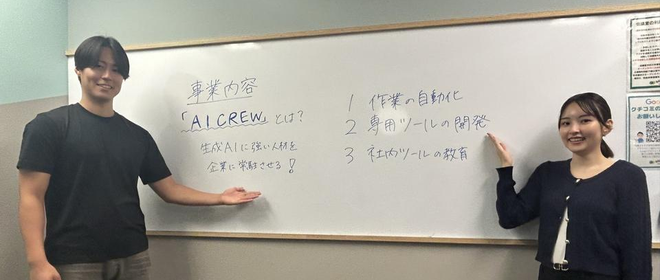 事業内容
「AI CREW」とは?
生成AIに強い人材を
企業に常駐させる!
1 作業の自動化
2 専用ツールの開発
3 社内ツールの教育
Goo
クチコミの
お願いし